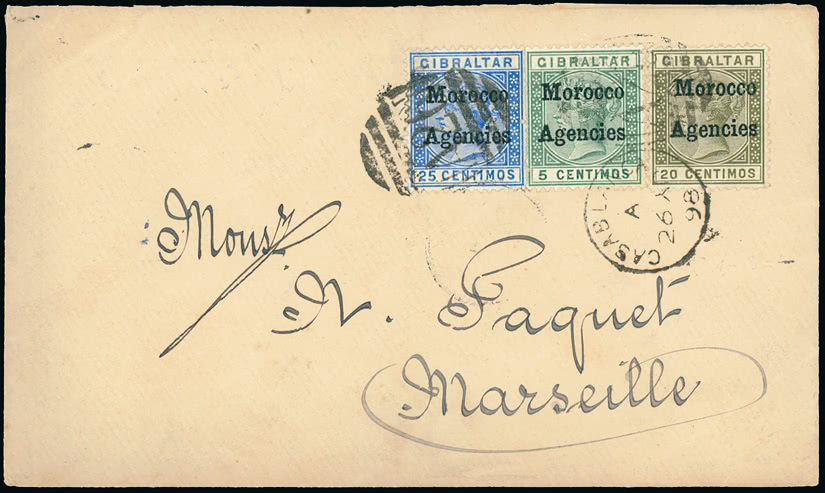 GIBRALTAR
Morocco
Agencies
25 CENTIMOS
GIBRALTAR
Morocco
Agencies
5 CENTIMOS
GIBRALTAR
Morocco
Agencies
20 CENTIMOS
A
26
98
Monsr
N. Paquet
Marseille